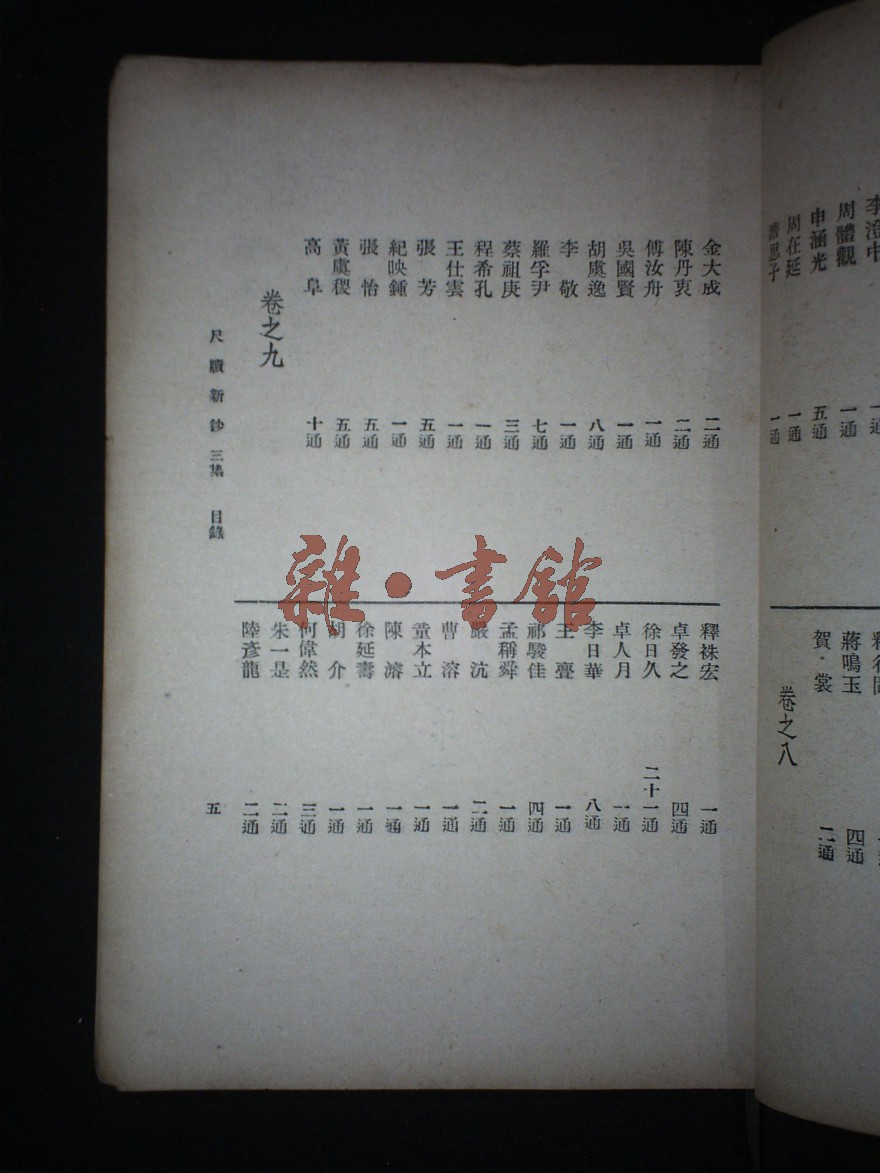 李澄中 一通
周體觀 一通
申涵光 五通
周在延 一通
思子 一通
蔣鳴玉 四通
賀・裳 二通
卷之八
金大成 二通
陳丹衷 二通
傅汝舟 一通
吳國賢 一通
胡虞逸 八通
李敬 一通
羅孚尹 七通
蔡祖庚 三通
程希孔 一通
王仕雲 一通
張芳 五通
紀映鍾 一通
張怡 五通
黃虞稷 五通
高阜 十通
卷之九
釋袾宏 一通
卓發之 四通
徐日久 二十一通
卓人月 一通
李日華 八通
王亹 一通
祁駿佳 四通
孟稱舜 一通
嚴沆 二通
曹溶 一通
童本立 一通
陳濬 一通
徐延壽 一通
胡介 一通
何偉然 三通
朱一是 二通
陸彥龍 二通
尺牘新鈔三集 目錄
五
雜・書館